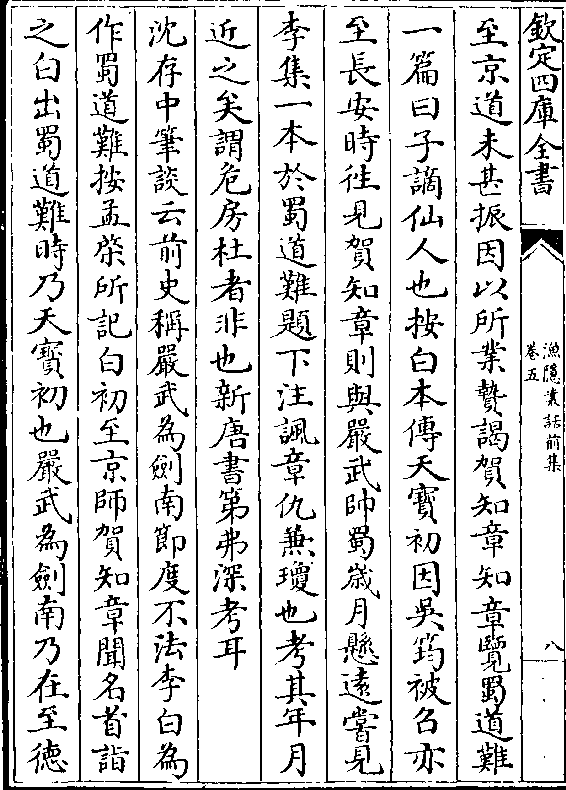 欽定四庫全書
漁隱叢話前集
卷五
八
至京道未甚振因以所業贄謁賀知章知章覽蜀道難
一篇曰子謫仙人也按白本傳天寶初因吳筠被召亦
至長安時往見賀知章則與嚴武帥蜀歲月懸遠嘗見
李集一本於蜀道難題下注諷章仇兼瓊也考其年月
近之矣謂危房杜者非也新唐書第弗深考耳
沈存中筆談云前史稱嚴武為劍南節度不法李白為
作蜀道難按孟棨所記白初至京師賀知章聞名首詣
之白出蜀道難時乃天寶初也嚴武為劍南乃在至德